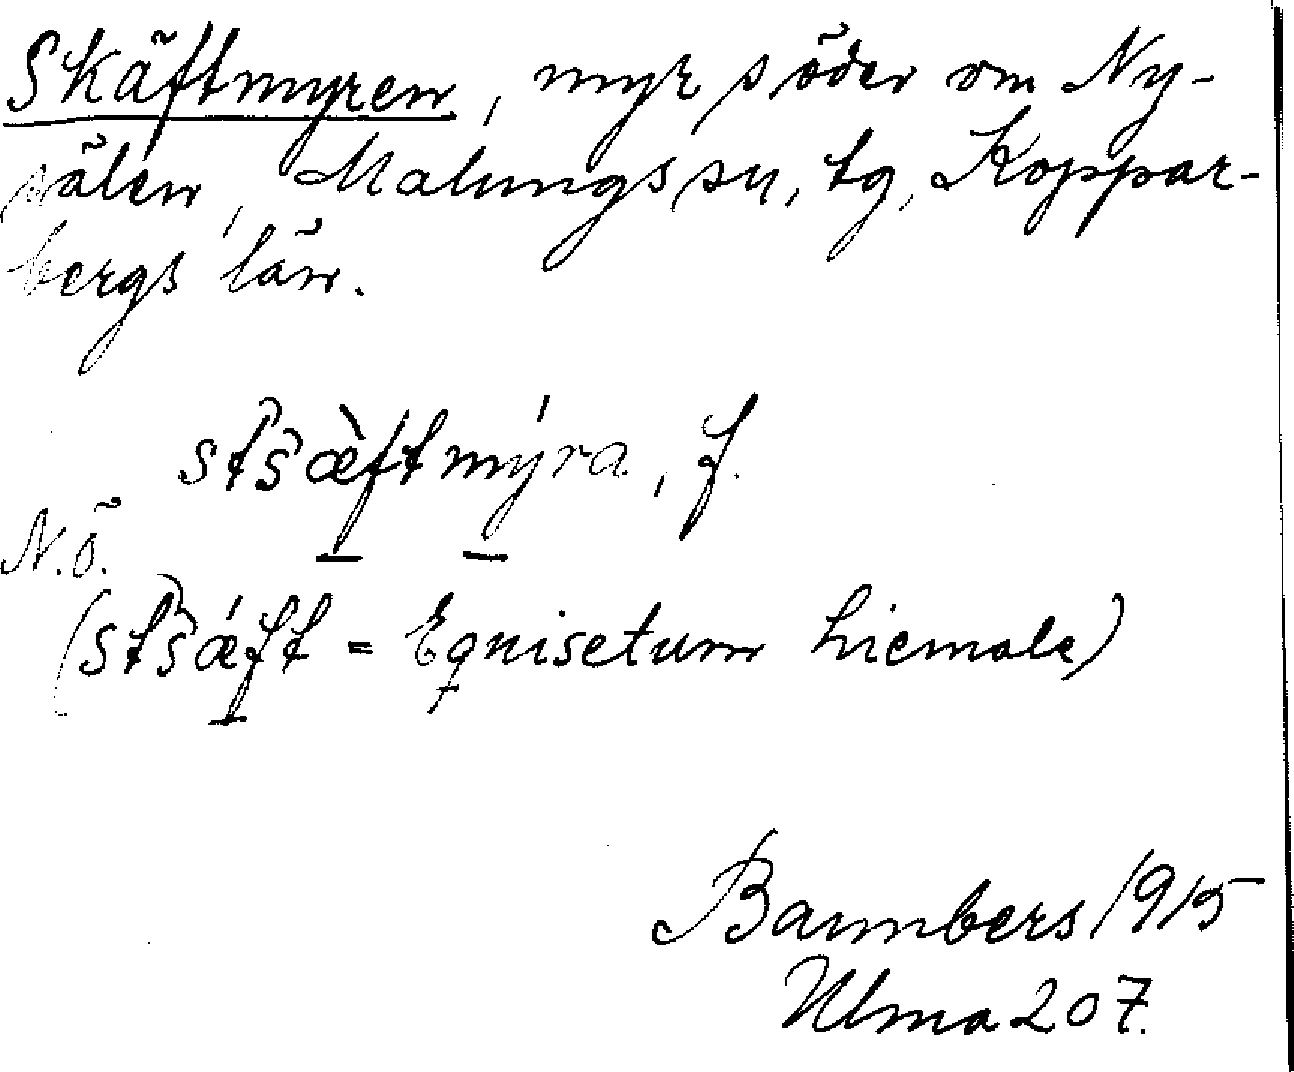 Skäftmyren, myr söder om Ny-
sälen, Malungs sn, tg, Koppar-
bergs län.
stšæ̀ftmýra, f.
N.ö.
(stšǽft = Equisetum hiemale)
1915
Ulma 207.